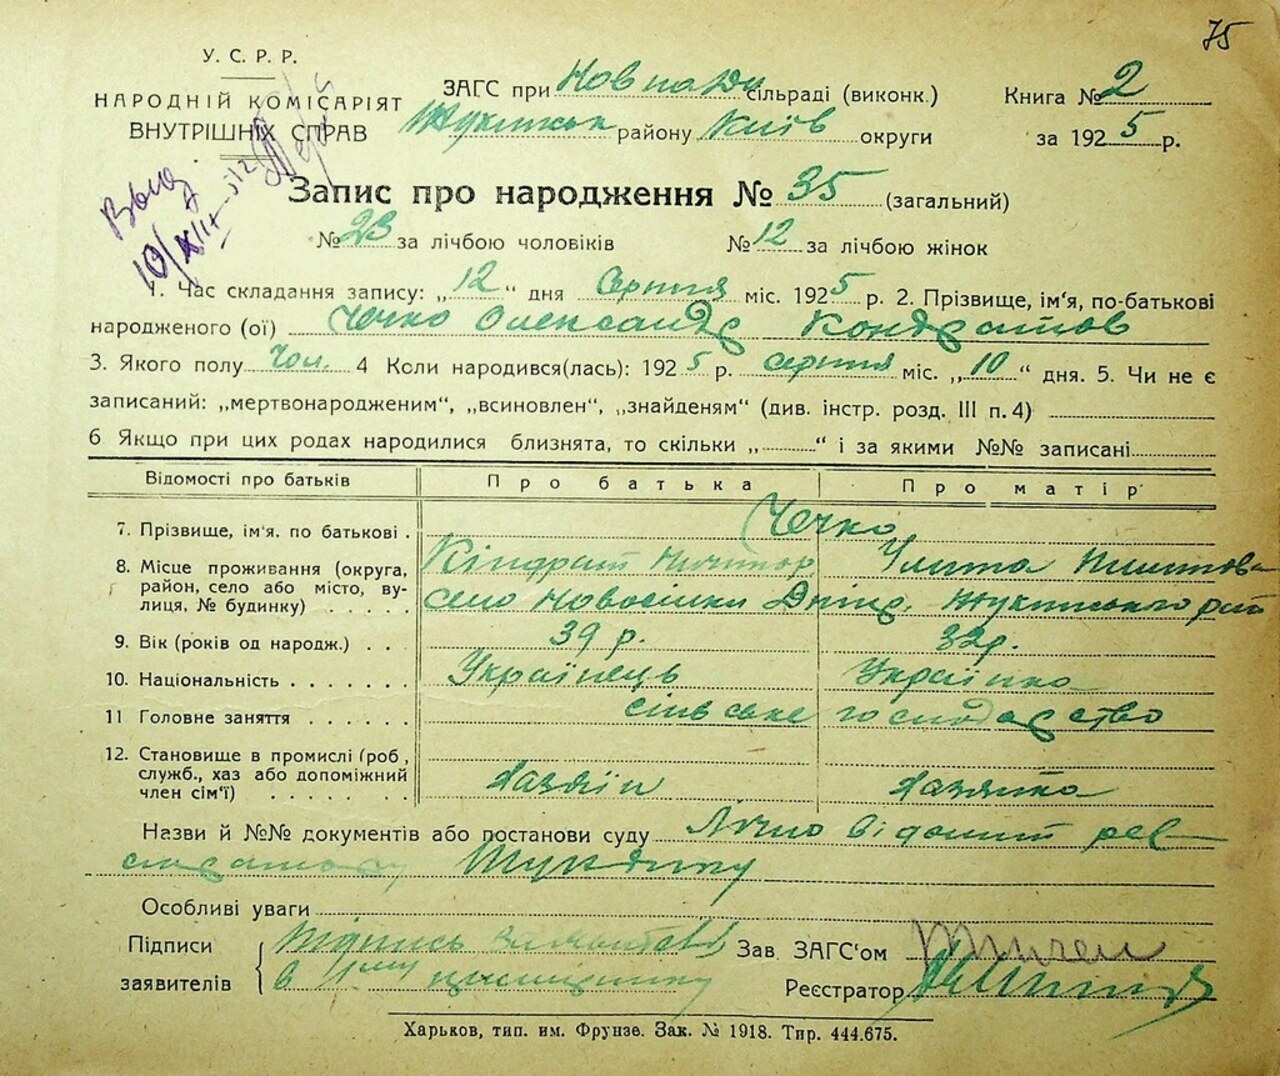 75
У. С. Р. Р.
НАРОДНІЙ КОМІСАРІЯТ
ВНУТРІШНІХ СПРАВ
ЗАГС при сільраді (виконк.)
району Київ округи
Книга № 2
за 1925 р.
Выд
Запис про народження № 35 (загальний)
№ 23 за лічбою чоловіків № 12 за лічбою жінок
1. Час складання запису: „12“ дня Серпня міс. 1925 р. 2. Прізвище, ім'я, по-батькові
народженого (ої) Чечко Олександр Кондратов
3. Якого полу Чол. 4 Коли народився(лась): 1925 р. серпня міс. „10“ дня. 5. Чи не є
записаний: „мертвонародженим“, „всиновлен“, „знайденям“ (див. інстр. розд. III п. 4)
6 Якщо при цих родах народилися близнята, то скільки „ “ і за якими №№ записані
Відомості про батьків Про батька Про матір
7. Прізвище, ім'я. по батькові . Чечко
Кіндрат Улита
8. Місце проживання (округа,
район, село або місто, ву-
лиця, № будинку) . . . . . село Новосілки Дніпр. Жукинського рай
9. Вік (років од народж.) . . . 39 р. 32р.
10. Національність . . . . . . . Українець Українка
11 Головне заняття . . . . . . сільське господарство
12. Становище в промислі (роб,
служб., хаз або допоміжний
член сім'ї) . . . . . . . Хазяїн Хазяйка
Назви й №№ документів або постанови суду Лічно відомий
Особливі уваги
Підписи
заявителів
Підпис
в 1му
Зав. ЗАГС'ом
Реєстратор
Харьков, тип. им. Фрунзе. Зак. № 1918. Тир. 444.675.